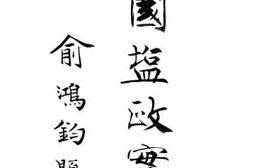 國塩政實
俞鴻鈞題